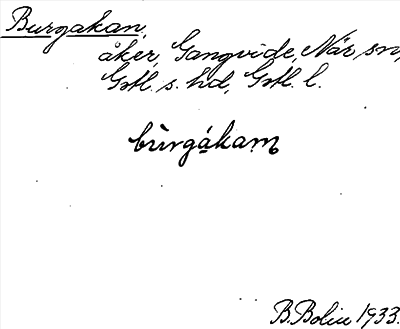 Burgakan,
åker, Gangvide, När sn,
Gotl. s. hd, Gotl. l.
bùrgákam
B. Bolin 1933.